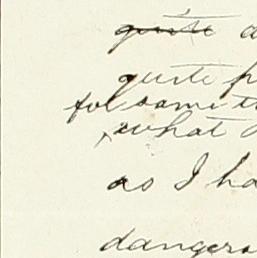 quite a
quite p
for some t
what
as I ha
dangero